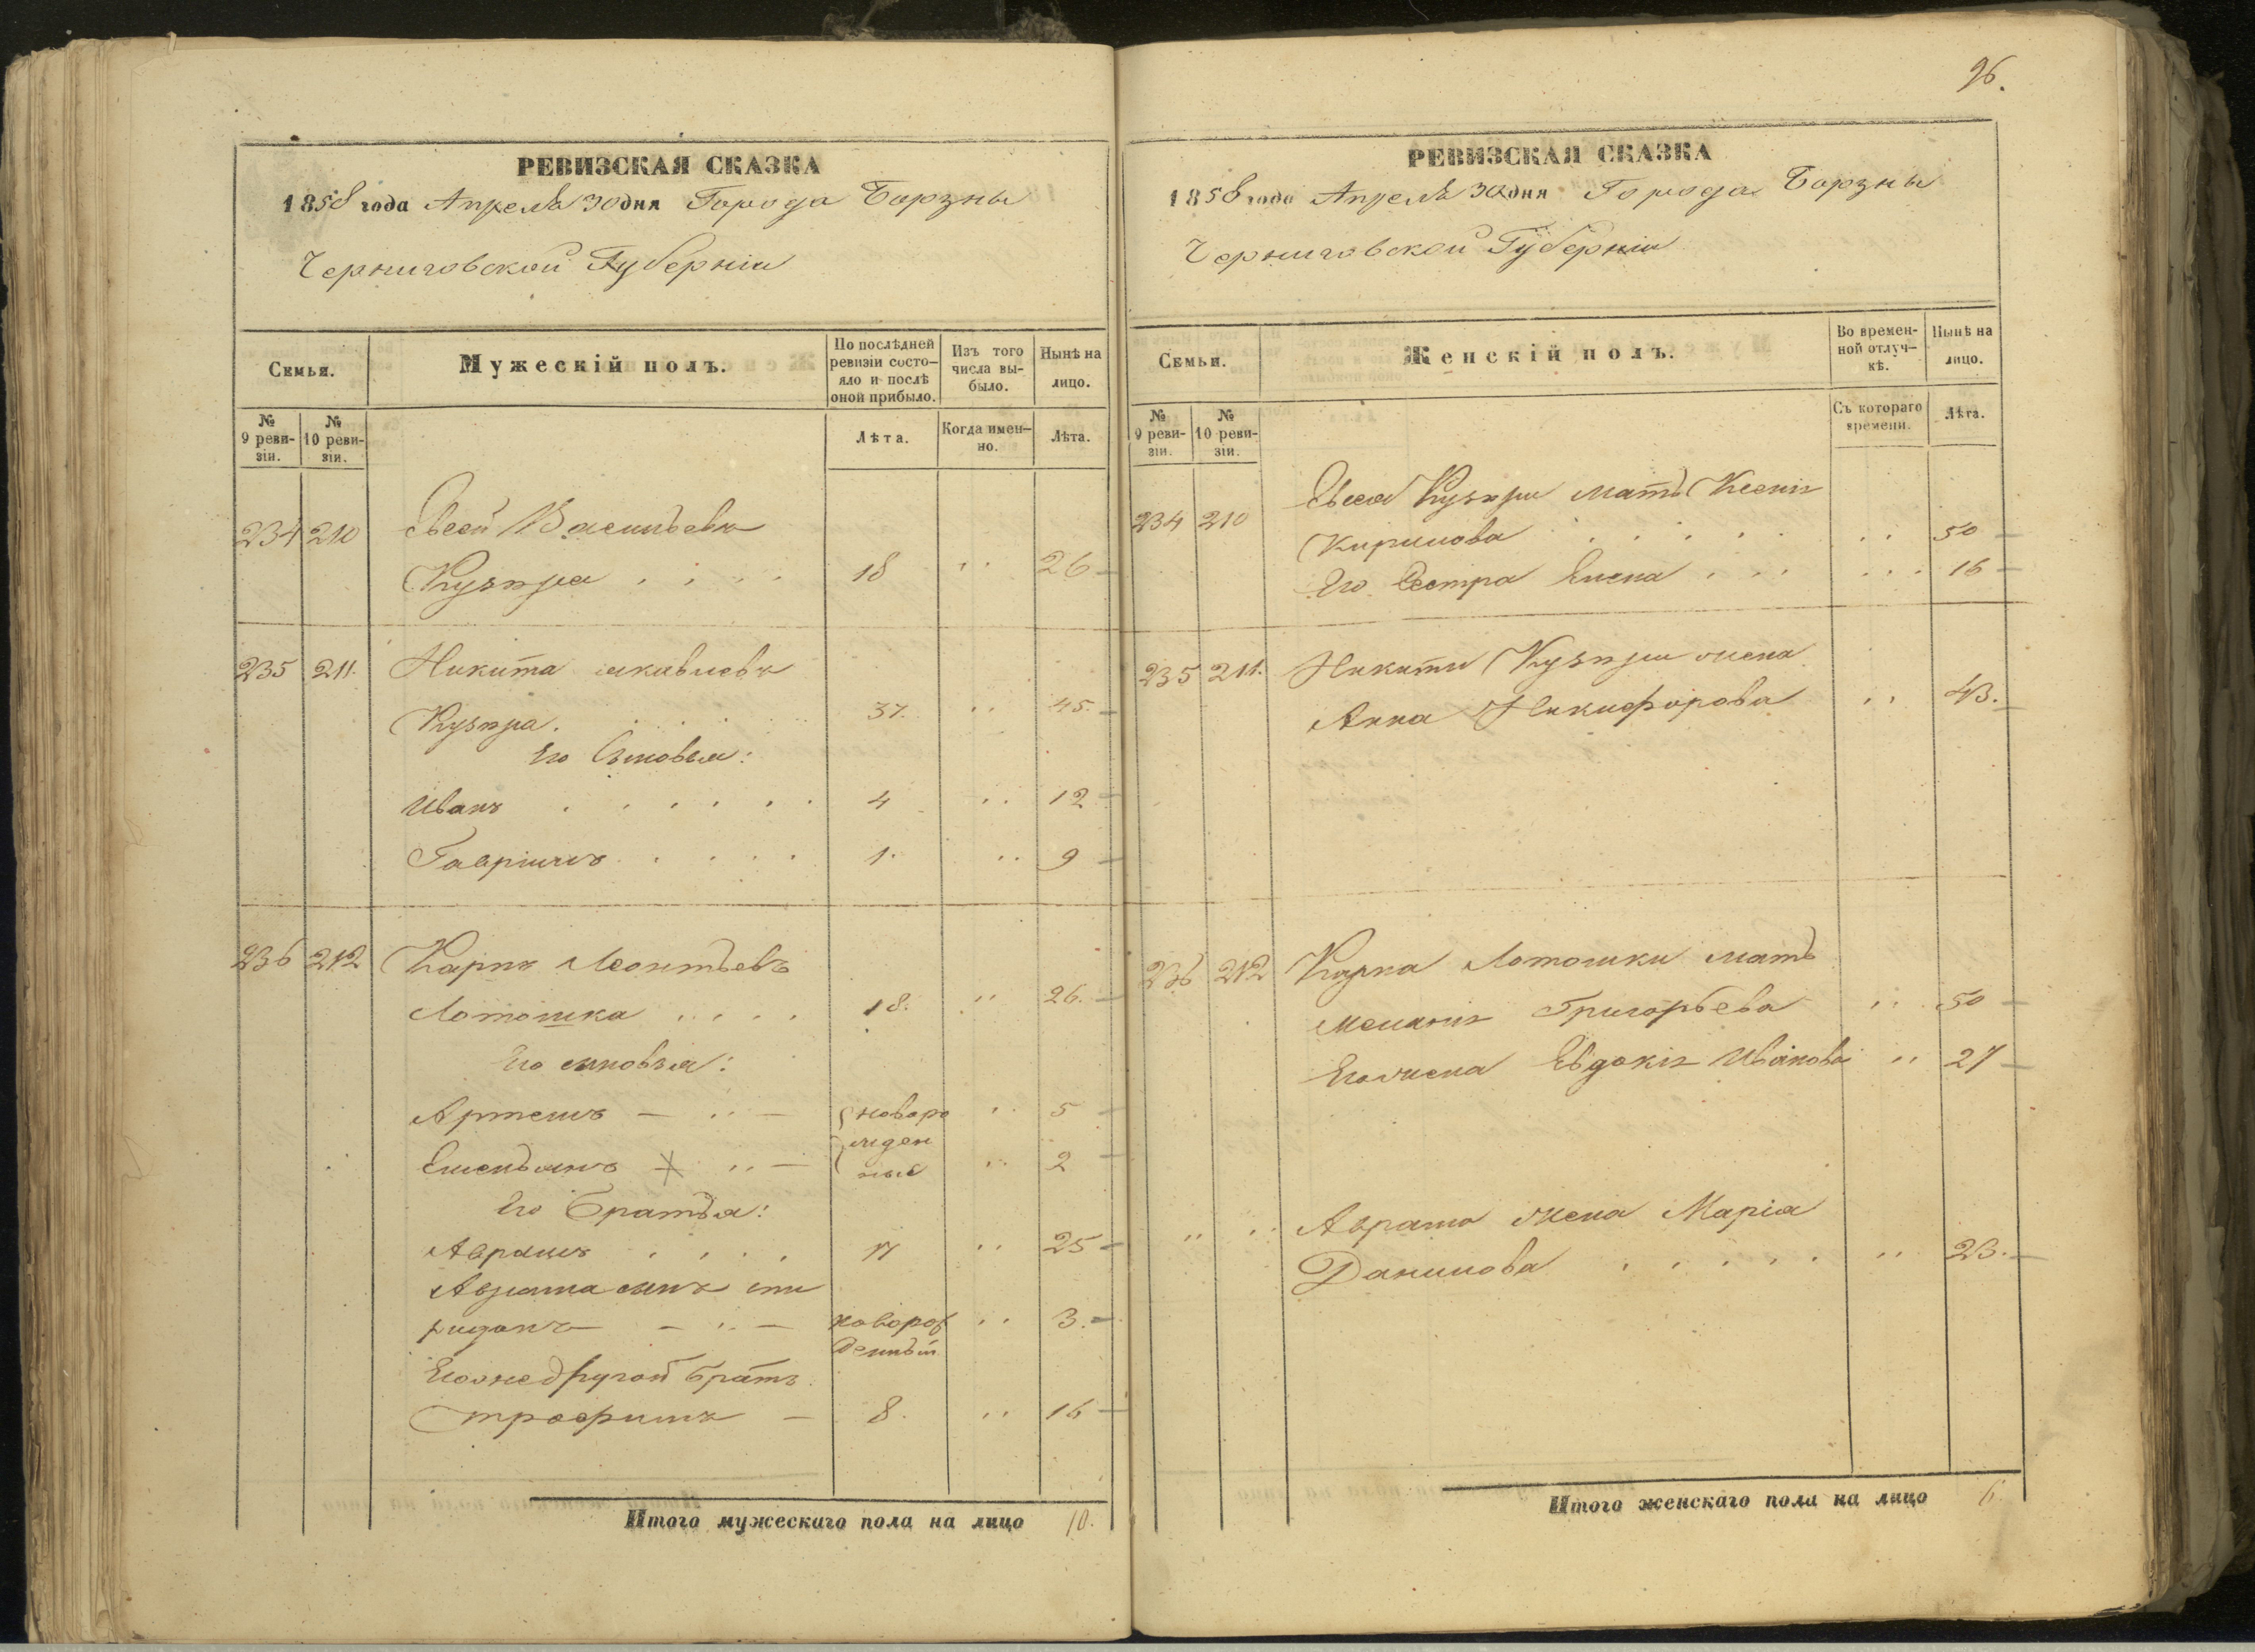 96.
РЕВИЗСКАЯ СКАЗКА
1858 года Апреля 30 дня Города Борзны
Черниговской Губерніи
Семьи.
Мужескій полъ.
По послѣдней ревизіи состо-
яло и послѣ оной прибыло.
Изъ того числа вы-
было.
Нынѣ на лицо.
№ 9 реви-
зіи.
№ 10 реви-
зіи.
Лѣта.
Когда имен-
но.
Лѣта.
234 210 Евсей Васильевъ
18 26
235 211. Никита
37. 45.
Его Сыновья:
Иванъ 4 12
Гавріилъ 1. 9
236 212 Карпъ Леонтьевъ
Лотошка 18. 26.
Его сыновья:
Артемъ новоро 5
жден
Емельянъ ные 2
Его Братья:
Аврамъ 17 25
Аврама сынъ спи
ридонъ новорож 3.
денный
Его же другой братъ
трофимъ 8. 16
Итого мужескаго пола на лицо 10.
РЕВИЗСКАЯ СКАЗКА
1858 года Апреля 30 дня Города Борзны
Черниговской Губерніи
Семьи.
Женскій полъ.
Во времен-
ной отлуч-
кѣ.
Нынѣ на лицо.
№ 9 реви-
зіи.
№ 10 реви-
зіи.
Съ котораго времени.
Лѣта.
234 210 Евсея мать Ксенія
Кирилова 50
Его Сестра Елена 16
235 211. Никиты жена
Анна Никифорова 43.
236 212 Карпа Лотошки мать
Меланія Григорьева 50
Его жена Евдокія Иванова 27
Аврама жена Марія
Данилова 23.
Итого женскаго пола на лицо 6.